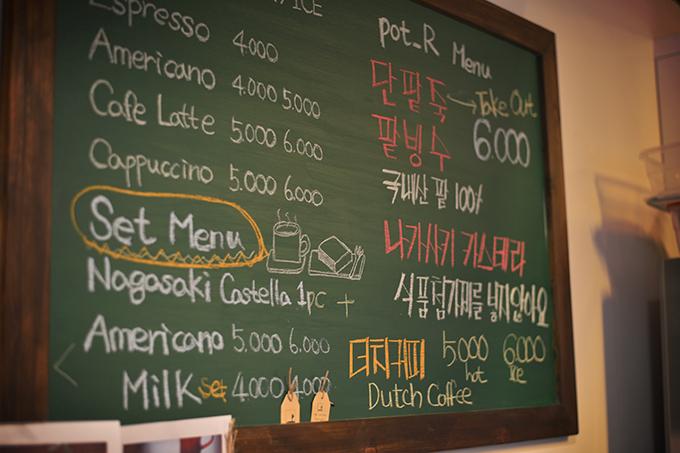 /ICE
Espresso 4.000
Americano 4.000 5.000
Cafe Latte 5.000 6.000
Cappuccino 5.000 6.000
Set Menu
Nagasaki Castella 1pc +
Americano 5.000 6.000
Milk set 4.000 4.000
pot_R Menu
단팥죽 → Take Out
팥빙수 6.000
국내산 팥 100%
나가사키 카스테라
식품첨가제를 넣지않아요
더치커피 5000 6000
hot Ice
Dutch Coffee